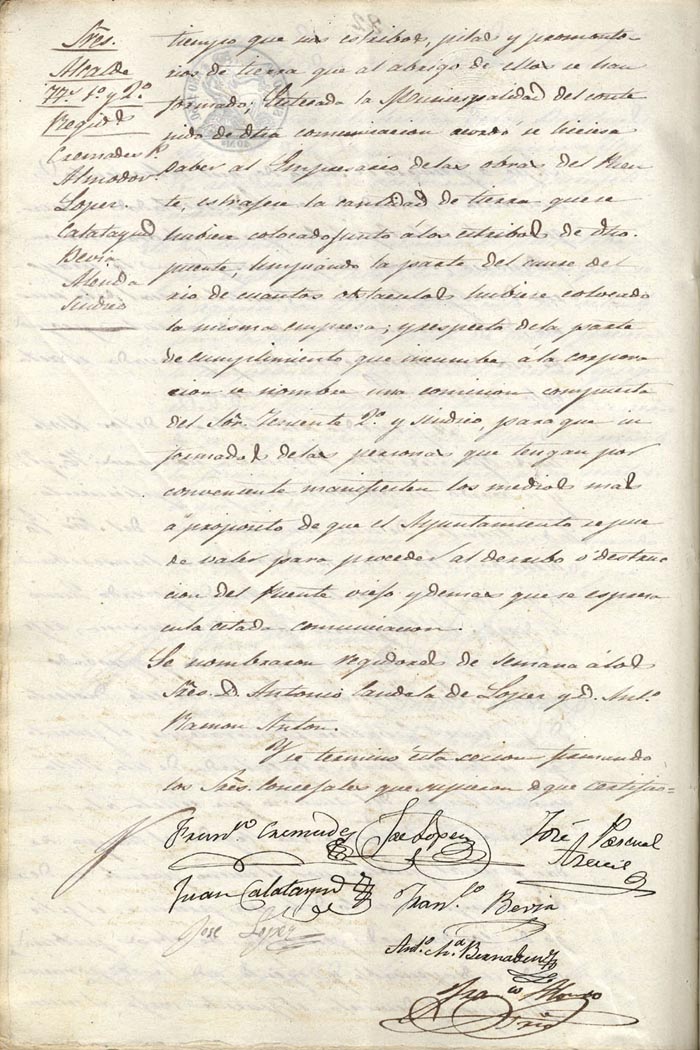 Sres.
Alcalde
Ttes. 1º y 2º
Regids
Cremades P.
Almodovr
Lopez.
Calatayud
Bevia
Sindico
tiempo que sus estribos, pilas y promonto-
rios de tierra que al abrigo de ellos se han
formado; Enterada la Municipalidad del conte
nido de dha comunicacion acordó se hiciese
saber al Empresario de las obras del Puen
te, estragese la cantidad de tierra que se
hubiese colocado junto á los estribos de dho.
puente, limpiando la parte del curso del
rio de cuantos obstaculos hubiese colocado
la misma empresa; y respecto de la parte
de cumplimiento que incumbe á la corpora
cion se nombre una comision compuesta
del Sor. Teniente 2º y sindico, para que in
formados de las personas que tengan por
conveniente manifiesten los medios mas
á proposito de que el Ayuntamiento se pue
de valer para proceder al derribo ó destruc
cion del Puente viejo y demas que se espresa
en la citada comunicacion.
Se nombraron regidores de semana á los
Sres. D. Antonio Candela de Lopez y D. Anto.
Ramon Anton.
Y se terminó esta secion firmando
los Sres. Concejales que supieron de que certifico=
Franco Cremades Jose Lopez José Pascual
Juan Calatayud Franco Bevia
Jose Lopez
Anto. Ma. Bernabeu
Srio